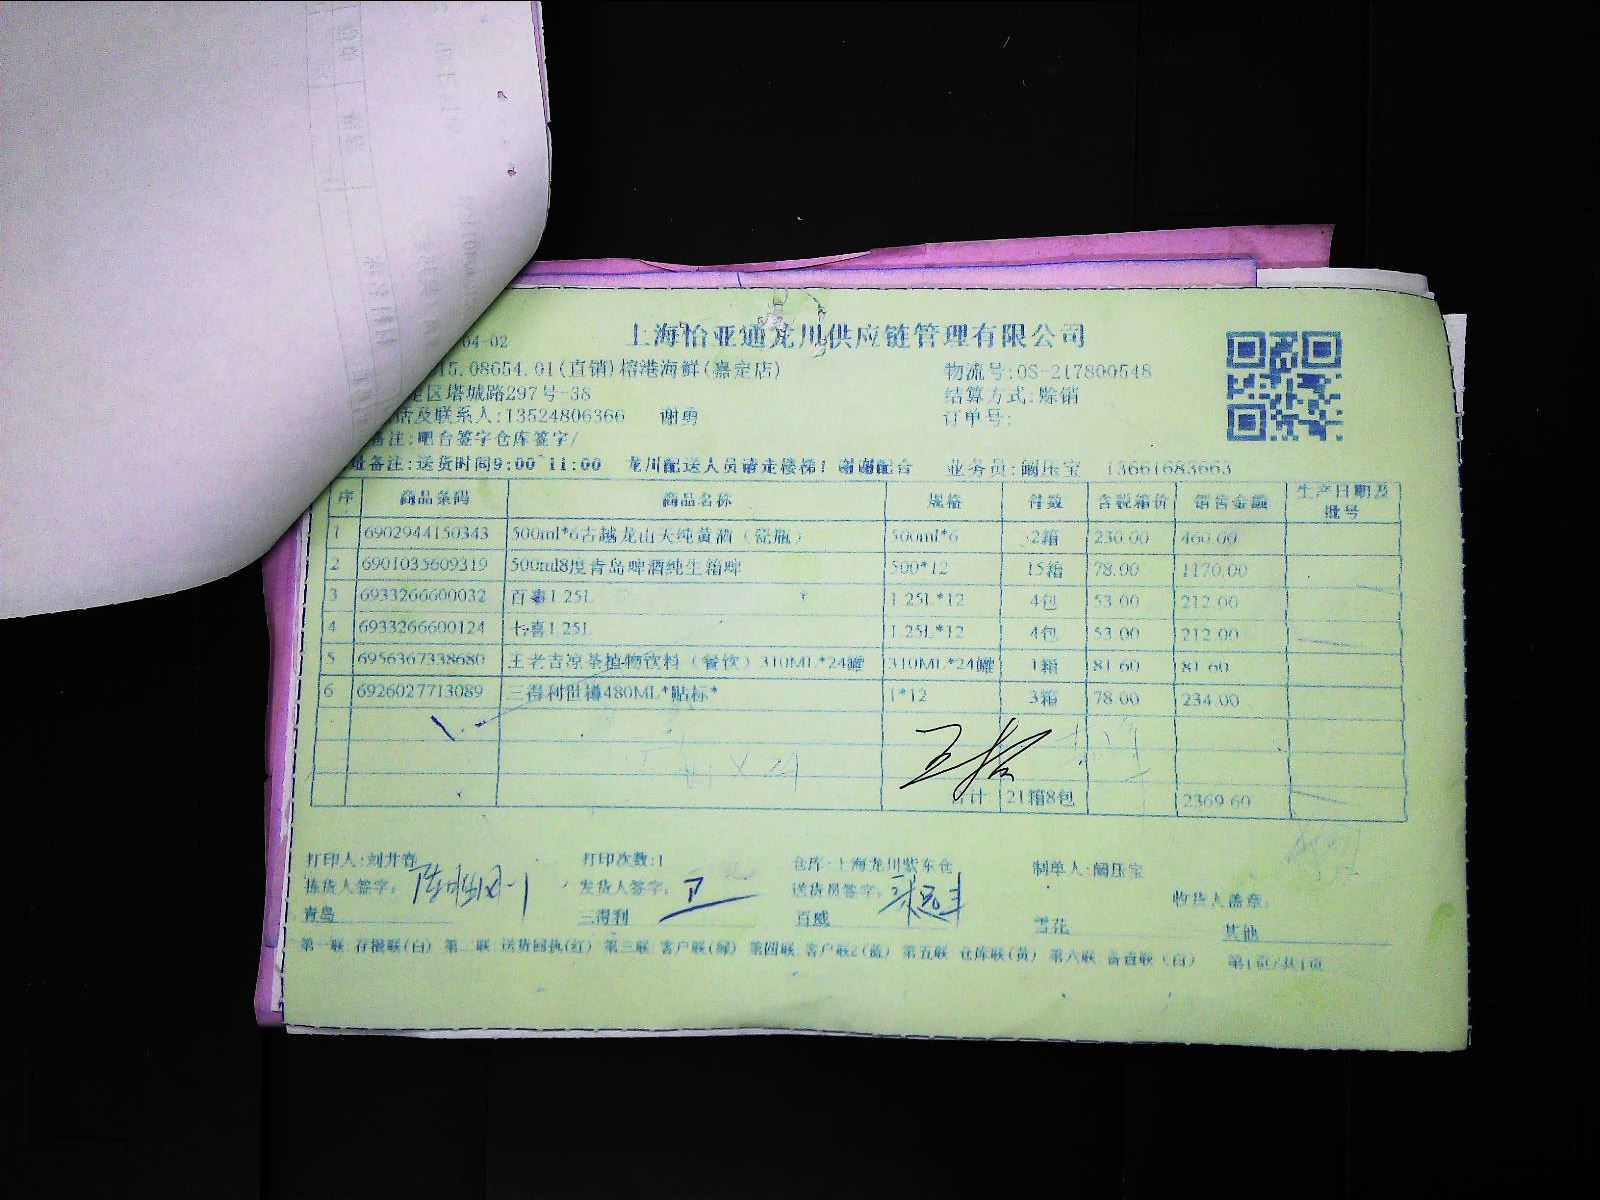 上海怡亚通龙川供应链管理有限公司
04-02
15.08654.01(直销)榕港海鲜(嘉定店)
物流号:OS-217800548
定区塔城路297号-38
结算方式:赊销
话及联系人:13524806366 谢勇
订单号:
备注:吧台签字仓库签字/
备注:送货时间9:00~11:00 龙川配送人员请走楼梯!谢谢配合 业务员:阚压宝 13661683663
序 商品条码 商品名称 规格 件数 含税箱价 销售金额 生产日期及批号
1 6902944150343 500ml*6古越龙山天纯黄酒(瓷瓶) 500ml*6 2箱 230.00 460.00
2 6901035609319 500ml8度青岛啤酒纯生箱啤 500*12 15箱 78.00 1170.00
3 6933266600032 百事1.25L 1.25L*12 4包 53.00 212.00
4 6933266600124 七喜1.25L 1.25L*12 4包 53.00 212.00
5 6956367338680 王老吉凉茶植物饮料(餐饮)310ML*24罐 310ML*24罐 1箱 81.60 81.60
6 6926027713089 三得利世博480ML*贴标* 1*12 3箱 78.00 234.00
合计 21箱8包 2369.60
打印人:刘井春 打印次数:1 仓库:上海龙川紫东仓 制单人:阚压宝
拣货人签字: 发货人签字: 卫 送货员签字: 收货人盖章:
青岛 三得利 百威 雪花 其他
第一联 存根联(白) 第二联 送货回执(红) 第三联 客户联(绿) 第四联 客户联2(蓝) 第五联 仓库联(黄) 第六联 备查联(白) 第1页/共1页